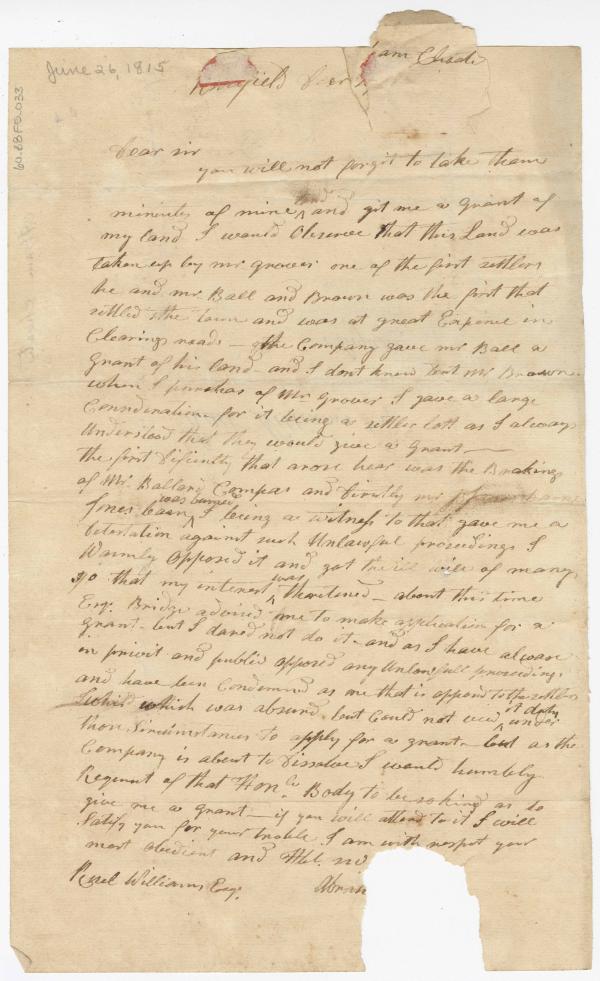 June 26, 1815
60.88F0.033
am Choate
Dear sir
you will not forgit to take them
minuits of mine and and git me a grant of
my land I would Observe that this Land was
taken up by mr grover one of the first settlers
he and mr Ball and Brown was the first that
settled the town and was at great Expence in
Clearing roads – the Company gave mr Ball a
grant of his land – and I dont know but Mr Brown
when I purchas of Mr grover I gave a large
Consideration for it being a settler lott as I always
Understood that they would give a grant —
the first Dificulty that arose hear was the Braking
of Mr Ballard Compas and Directly mr
Jones barn was burned I being a witness to that gave me a
detestation against such Unlawful proceedings I
Warmly Opposed it and got the ill will of many
so that my interest was thretened – about this time
Esqr. Bridge advised me to make application for a
grant – but I dared not do it – and as I have alwase
in privit and public opposed any Unlawfull proceedings
and have ben Condemned as one that is oppsd to the settlers
which which was absurd, but Could not veiw it duty under
those Sircumstances to apply for a grant – but as the
Company is about to Dissolve I would humbly
Request of that Honle Body to be so kind as to
give me a grant – if you will attend to it I will
Satisfy you for your troble I am with respet your
most obedient and Hbl.
Ruel Williams Esqr.
Abra